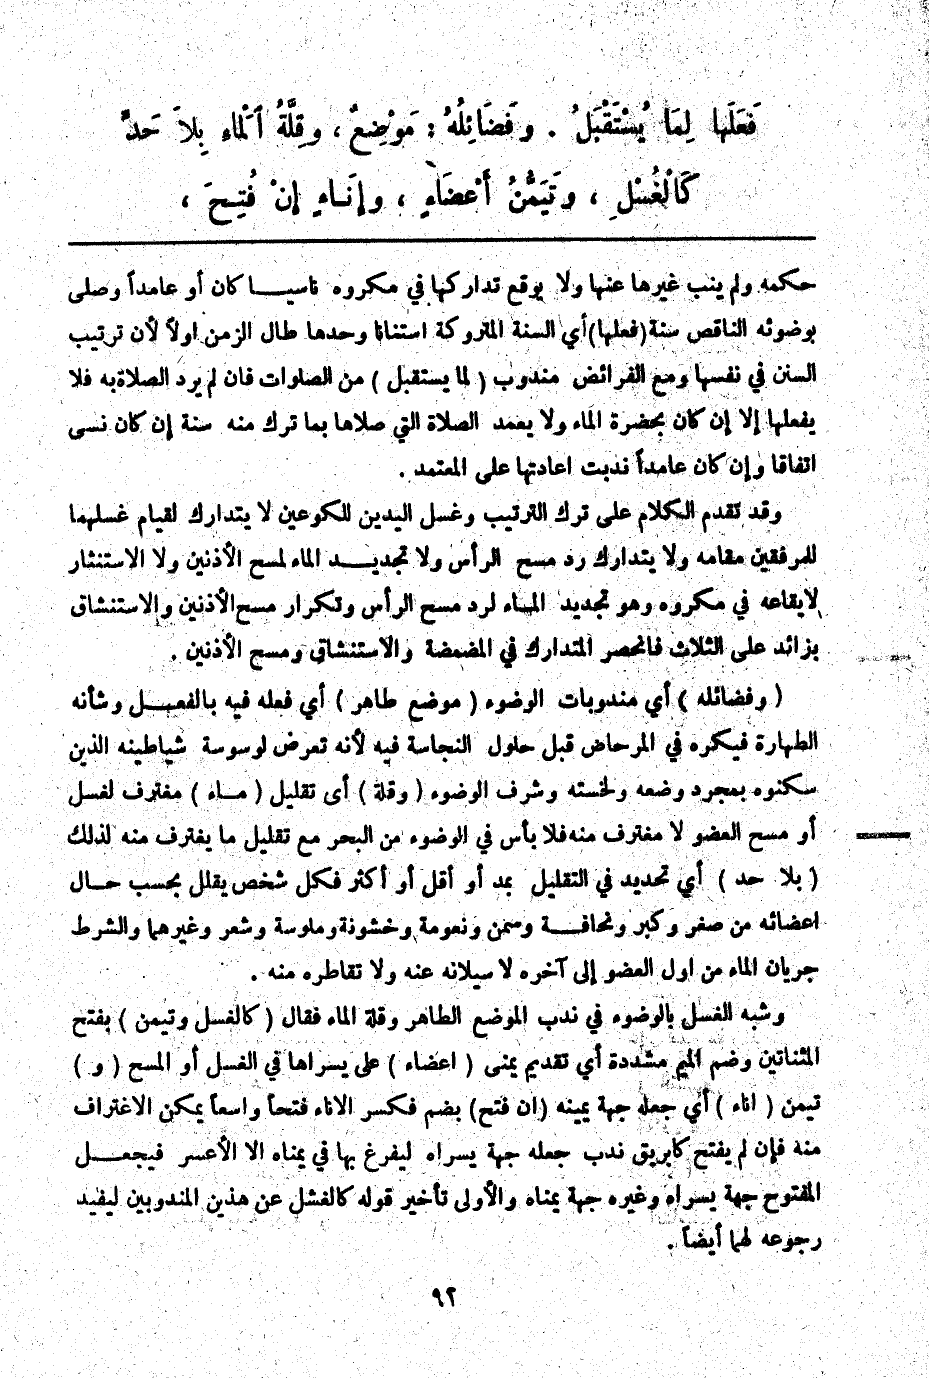 فَعَلَها لِمَا يُسْتَقْبَلُ . وفَضَائِلُهُ : مَوْضِعٌ ، وقِلَّةُ ٱلْماءِ بِلاَ حَدٍّ
كَالْغُسْلِ ، وتَيَمُّنُ أَعْضَاءٍ ، وإنَاءٍ إنْ فُتِحَ ،
حكمه ولم ينب غيرها عنها ولا يوقع تداركها في مكروه ناسيا كان أو عامداً وصلى
بوضوئه الناقص سنة (فعلها) أي السنة المتروكة استنانا وحدها طال الزمن اولاً لأن ترتيب
السنن في نفسها ومع الفرائض مندوب ( لما يستقبل ) من الصلوات فان لم يرد الصلاة به فلا
يفعلها إلا إن كان بحضرة الماء ولا يعمد الصلاة التي صلاها بما ترك منه سنة إن كان نسى
اتفاقا وإن كان عامداً ندبت اعادتها على المعتمد .
وقد تقدم الكلام على ترك الترتيب وغسل اليدين للكوعين لا يتدارك لقيام غسلهما
للمرفقين مقامه ولا يتدارك رد مسح الرأس ولا تجديد الماء لمسح الأذنين ولا الاستنثار
لايقاعه في مكروه وهو تجديد الماء لرد مسح الرأس وتكرار مسح الأذنين والاستنشاق
بزائد على الثلاث فانحصر المتدارك في المضمضة والاستنشاق ومسح الأذنين .
( وفضائله ) أي مندوبات الوضوء ( موضع طاهر ) أي فعله فيه بالفعل وشأنه
الطهارة فيكره في المرحاض قبل حلول النجاسة فيه لأنه تعرض لوسوسة شياطينه الذين
سكنوه بمجرد وضعه ولخسته وشرف الوضوء ( وقلة ) أى تقليل ( ماء ) مغترف لغسل
أو مسح العضو لا مغترف منه فلا بأس في الوضوء من البحر مع تقليل ما يغترف منه لذلك
( بلا حد ) أي تحديد في التقليل بمد أو أقل أو أكثر فكل شخص يقلل بحسب حال
اعضائه من صغر وكبر ونحافة وسمن ونعومة وخشونة وملوسة وشعر وغيرهما والشرط
جريان الماء من اول العضو إلى آخره لا سيلانه عنه ولا تقاطره منه .
وشبه الغسل بالوضوء في ندب الموضع الطاهر وقلة الماء فقال ( كالغسل وتيمن ) بفتح
المثناتين وضم الميم مشددة أي تقديم يمنى ( اعضاء ) على يسراها في الغسل أو المسح ( و )
تيمن ( اناء ) أي جعله جهة يمينه (ان فتح) بضم فكسر الاناء فتحاً واسعاً يمكن الاغتراف
منه فإن لم يفتح كابريق ندب جعله جهة يسراه ليفرغ بها في يمناه الا الأعسر فيجعل
المفتوح جهة يسراه وغيره جهة يمناه والأولى تأخير قوله كالغسل عن هذين المندوبين ليفيد
رجوعه لهما أيضاً .
٩٢